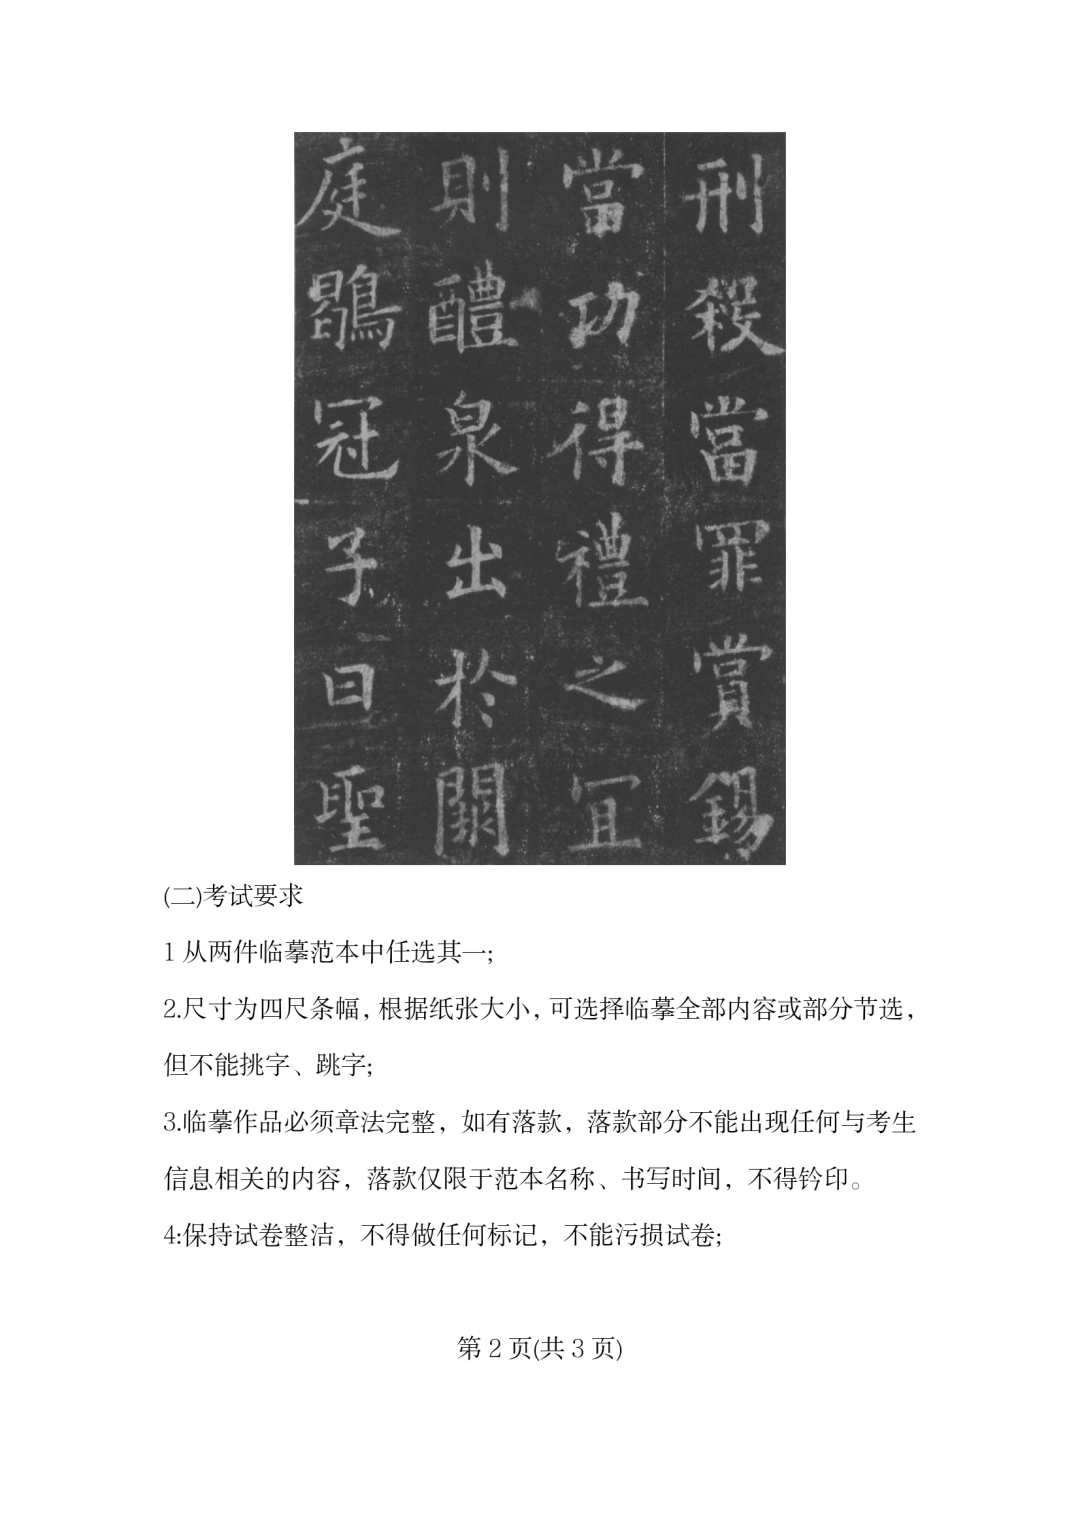 刑殺當罪賞錫
當功得禮之冝
則醴泉出於闕
庭鶡冠子曰聖
(二)考试要求
1 从两件临摹范本中任选其一;
2.尺寸为四尺条幅，根据纸张大小，可选择临摹全部内容或部分节选，
但不能挑字、跳字;
3.临摹作品必须章法完整，如有落款，落款部分不能出现任何与考生
信息相关的内容，落款仅限于范本名称、书写时间，不得钤印。
4:保持试卷整洁，不得做任何标记，不能污损试卷;
第 2 页(共 3 页)